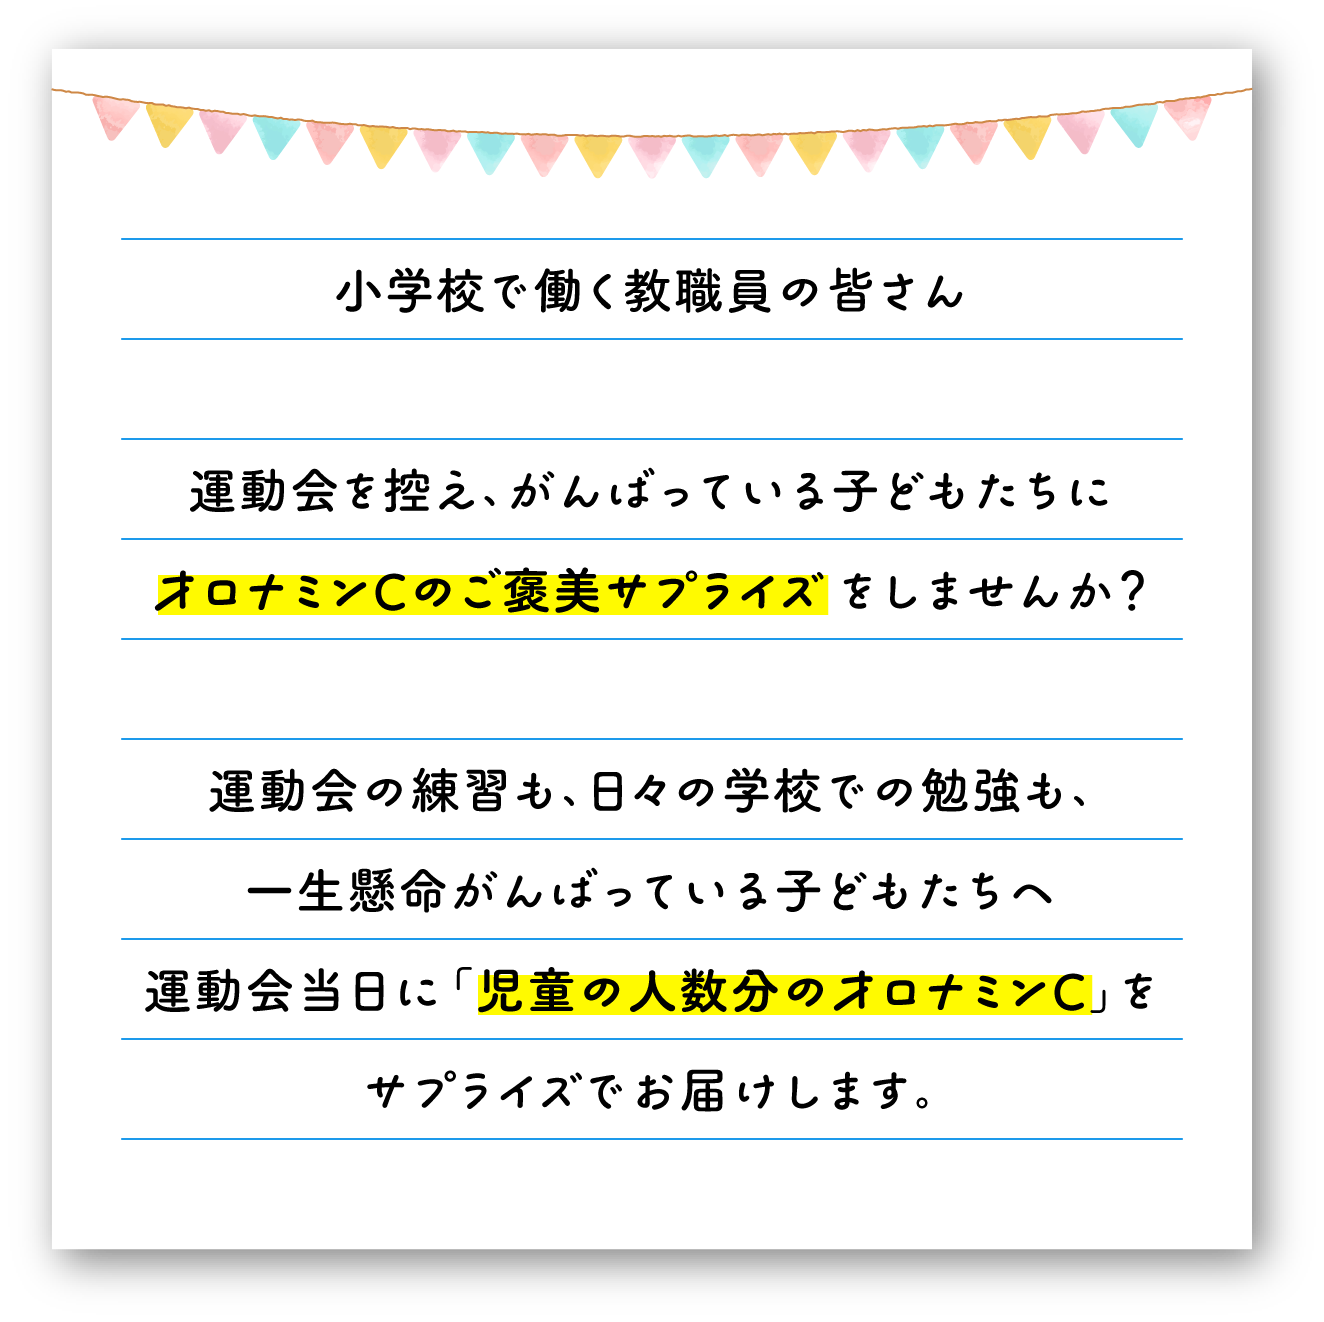 小学校で働く教職員の皆さん
運動会を控え、がんばっている子どもたちに
オロナミンCのご褒美サプライズをしませんか？
運動会の練習も、日々の学校での勉強も、
一生懸命がんばっている子どもたちへ
運動会当日に「児童の人数分のオロナミンC」を
サプライズでお届けします。